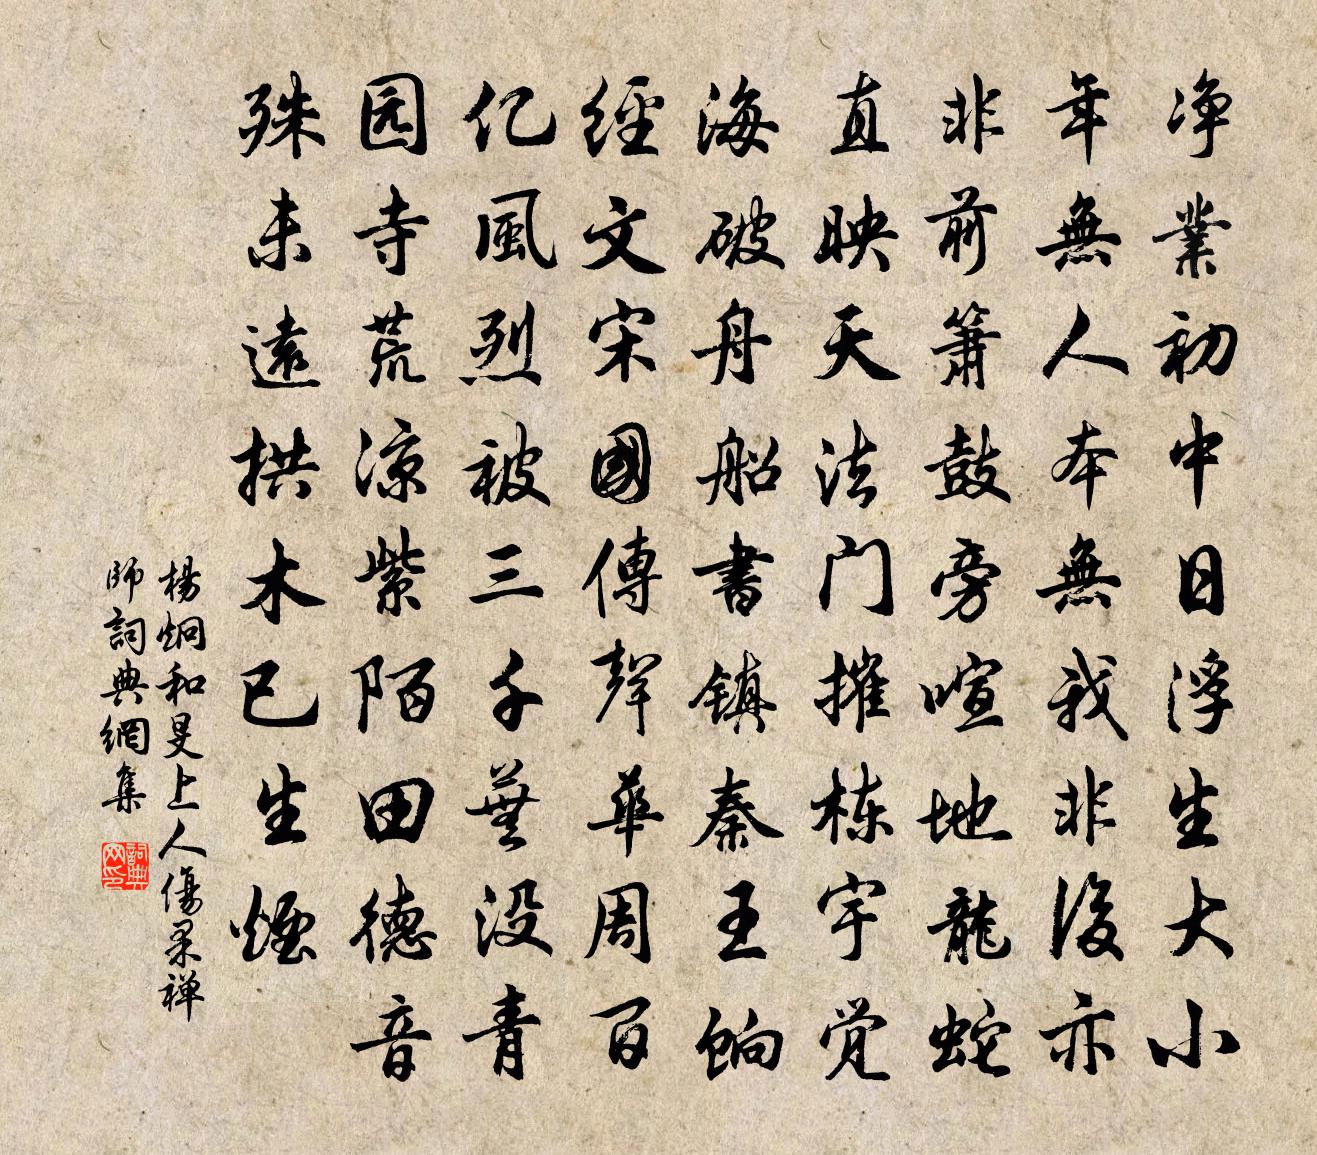 净業初中日浮生大小
年無人本無我非後亦
非前箫鼓旁喧地龍蛇
直映天法门摧栋宇觉
海破舟船書镇秦王餉
經文宋國傳聲華周百
亿風烈被三千蕪没青
园寺荒凉紫陌田德音
殊未遠拱木已生煙
楊炯和旻上人傷果禅
師詞典網集